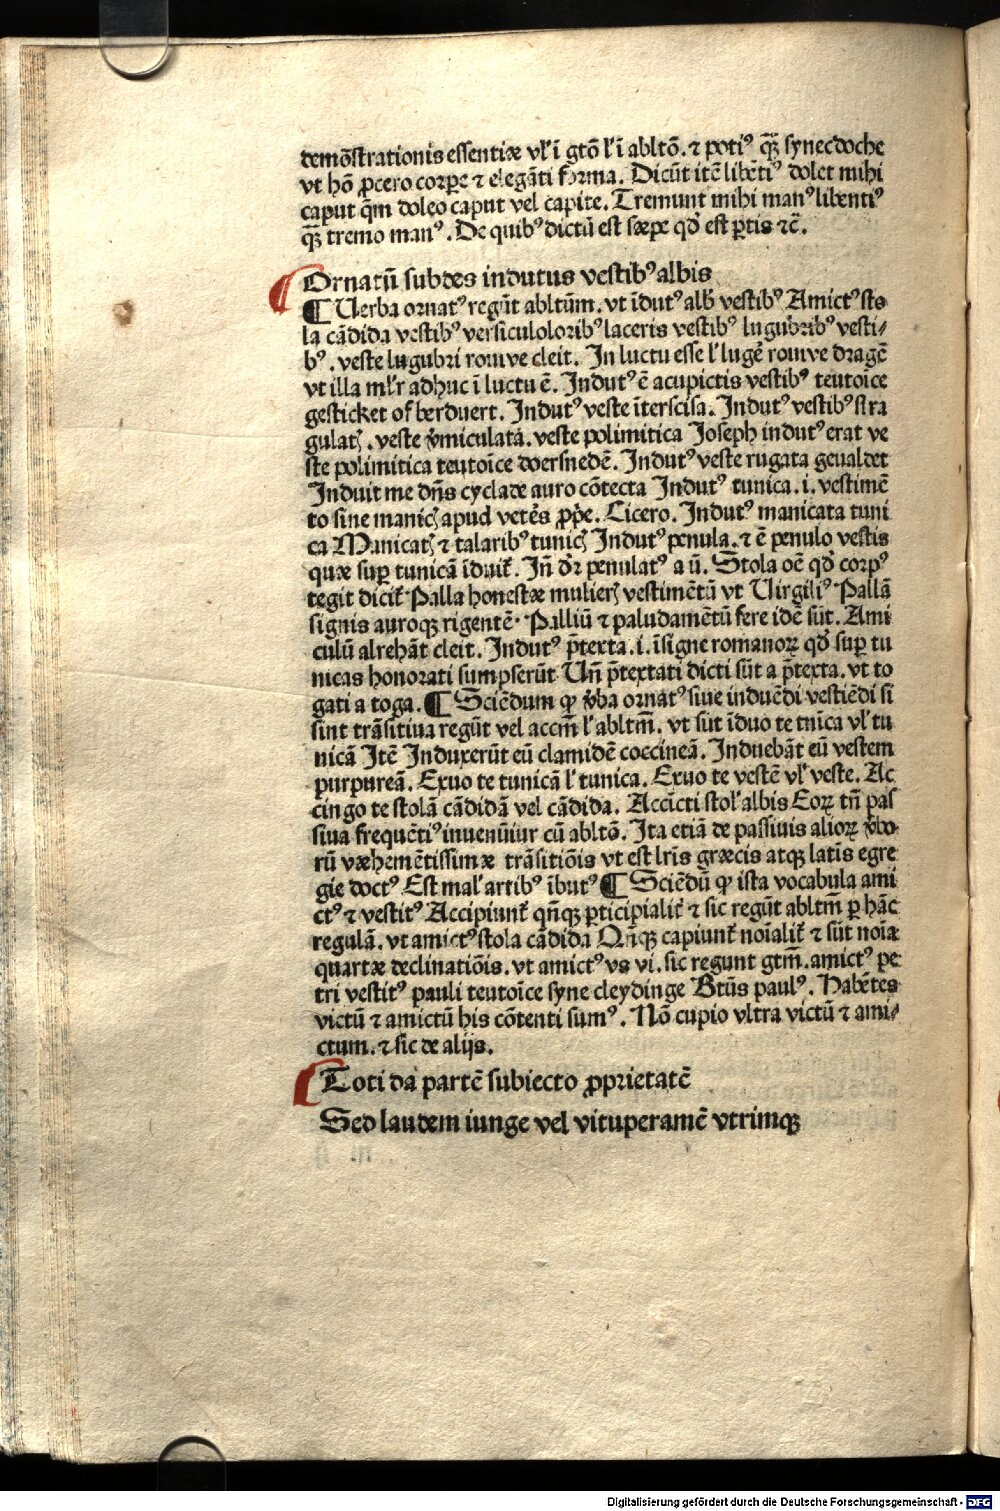 demōstrationis essentiæ vl' ī gtō l' ī abltō. ⁊ poti⁹ q̄ꝫ synecdoche
vt hō ꝓcero corꝑe ⁊ elegāti forma. Dicūt itē libēti⁹ dolet mihi
caput q̄m doleo caput vel capite. Tremunt mihi man⁹ libenti⁹
q̄ꝫ tremo man⁹. De quib⁹ dictū est sæpe qd' est ꝑtis ⁊c̄.
Ornatū subdes indutus vestib⁹ albis
¶ Uerba ornat⁹ regūt abltūm. vt īdut⁹ alb' vestib⁹ Amict⁹ sto
la cādida vestib⁹ versiculoloribꝰ laceris vestib⁹ lugubrib⁹ vesti⸗
b⁹. veste lugubri rouwe cleit. In luctu esse l' lugēr rouwe dragē
vt illa ml'r adhuc ī luctu ē. Indut⁹ ē acupictis vestib⁹ teutoīce
gesticket of berduert. Indut⁹ veste īterscisa. Indut⁹ vestib⁹ stra
gulatꝭ. veste v̓miculata. veste polimitica Joseph indut⁹ erat ve
ste polimitica teutoīce doersnedē. Indut⁹ veste rugata geualdet
Induit me dn̄s cyclade auro cōtecta Indut⁹ tunica. i. vestimē
to sine manicꝭ apud vetēs ꝓp̄e. Cicero. Indut⁹ manicata tuni
ca Manicatꝭ ⁊ talarib⁹ tunicꝭ Indut⁹ penula. ⁊ ē penulo vestis
quæ suꝑ tunicā īduit᷑. Iñ dr̄ penulat⁹ a ū. Stola oē qd' corp⁹
tegit dicit᷑ Palla honestæ mulierꝭ vestimētū vt Uirgili⁹ Pallā
signis auroqꝫ rigentē. Palliū ⁊ paludamētū fere idē sūt. Ami
culū alrehāt cleit. Indut⁹ p̄texta. i. īsigne romanoꝝ qd' suꝑ tu
nicas honorati sumpserūt Uñ p̄textati dicti sūt a p̄texta. vt to
gati a toga. ¶ Sciēdum ꝙ v̓ba ornat⁹ siue induēdi vestiēdi si
sint trāsitiua regūt vel accm̄ l' abltm̄. vt sūt īduo te tnīca vl' tu
nicā Itē Induxerūt eū clamidē coccineā. Induebāt eū vestem
purpureā. Exuo te tunicā l' tunica. Exuo te vestē vl' veste. Ac
cingo te stolā cādidā vel cādida. Accīcti stol' albis Eoꝝ tn̄ pas
siua frequēti⁹ inuenūtur cū abltō. Ita etiā de passiuis alioꝝ v̓bo
rū væhemētissimæ trāsitiōis vt est lr̄is græcis atqꝫ latīs egre
gie doct⁹ Est mal' artib⁹ ībut⁹ ¶ Sciēdū ꝙ ista vocabula ami
ct⁹ ⁊ vestit⁹ Accipiunt᷑ qn̄qꝫ ꝑticipialit᷑ ⁊ sic regūt abltm̄ ꝑ hāc
regulā. vt amict⁹ stola cādida Qn̄qꝫ capiunt᷑ noīalit᷑ ⁊ sūt noīa
quartæ declinatiōis. vt amict⁹ vs vi. sic regunt gtm̄. amict⁹ pe
tri vestit⁹ pauli teutoīce syne cleydinge Btūs paul⁹. Habētes
victū ⁊ amictū his cōtenti sum⁹. Nō cupio vltra victū ⁊ ami⸗
ctum. ⁊ sic de alijs.
Toti da partē subiecto ꝓprietatē
Sed laudem iunge vel vituperamē vtrimqꝫ
Digitalisierung gefördert durch die Deutsche Forschungsgemeinschaft - DFG